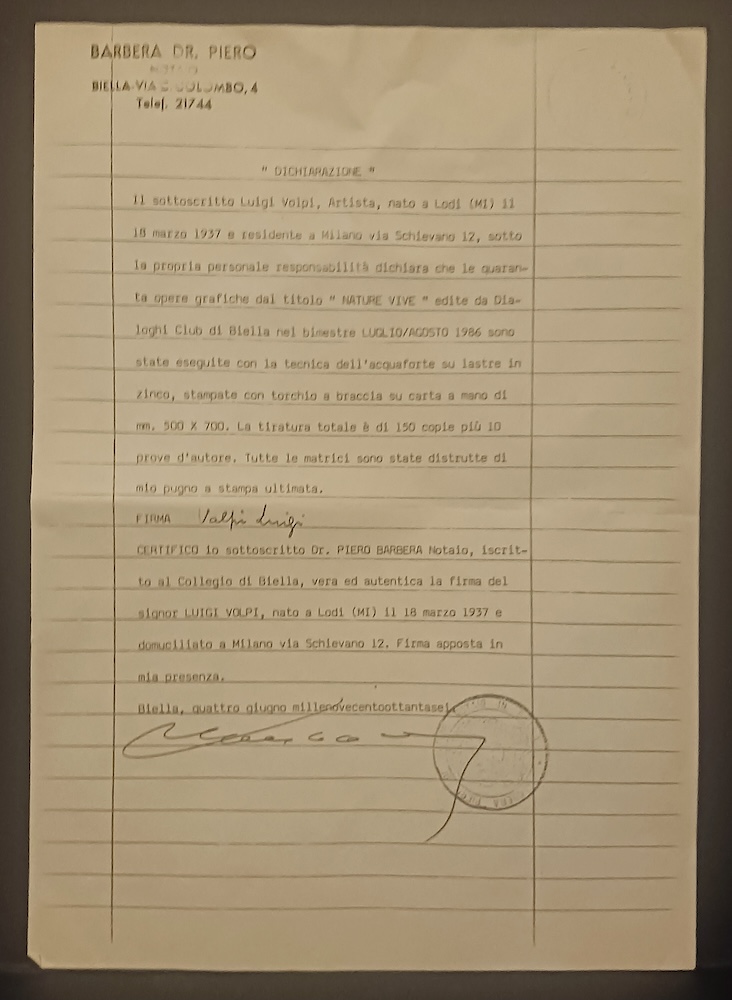 BARBERA DR. PIERO
NOTAIO
BIELLA-VIA C. COLOMBO, 4
Telef. 21744
" DICHIARAZIONE "
Il sottoscritto Luigi Volpi, Artista, nato a Lodi (MI) il
18 marzo 1937 e residente a Milano via Schievano 12, sotto
la propria personale responsabilità dichiara che le quaran-
ta opere grafiche dal titolo " NATURE VIVE " edite da Dia-
loghi Club di Biella nel bimestre LUGLIO/AGOSTO 1986 sono
state eseguite con la tecnica dell'acquaforte su lastre in
zinco, stampate con torchio a braccia su carta a mano di
mm. 500 X 700. La tiratura totale è di 150 copie più 10
prove d'autore. Tutte le matrici sono state distrutte di
mio pugno a stampa ultimata.
FIRMA Volpi Luigi
CERTIFICO io sottoscritto Dr. PIERO BARBERA Notaio, iscrit-
to al Collegio di Biella, vera ed autentica la firma del
signor LUIGI VOLPI, nato a Lodi (MI) il 18 marzo 1937 e
domuciliato a Milano via Schievano 12. Firma apposta in
mia presenza.
Biella, quattro giugno millenovecentoottantasei.